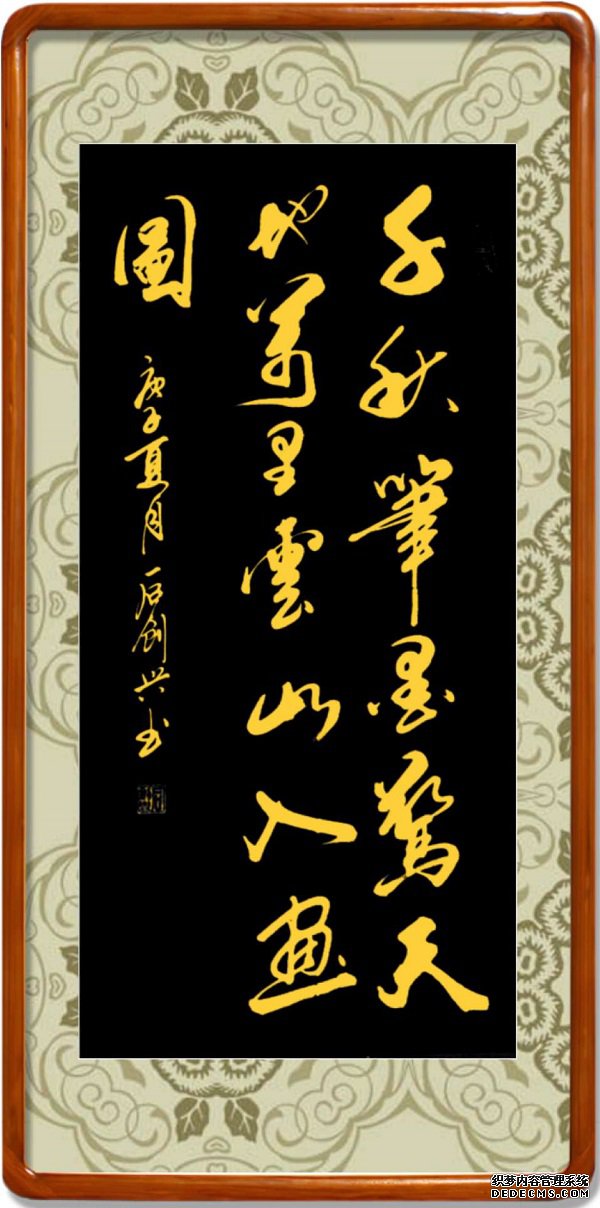 千秋筆墨驚天
地萬里雲山入畫
圖
庚子夏月石創興书
织梦内容管理系统
DEDECMS.COM